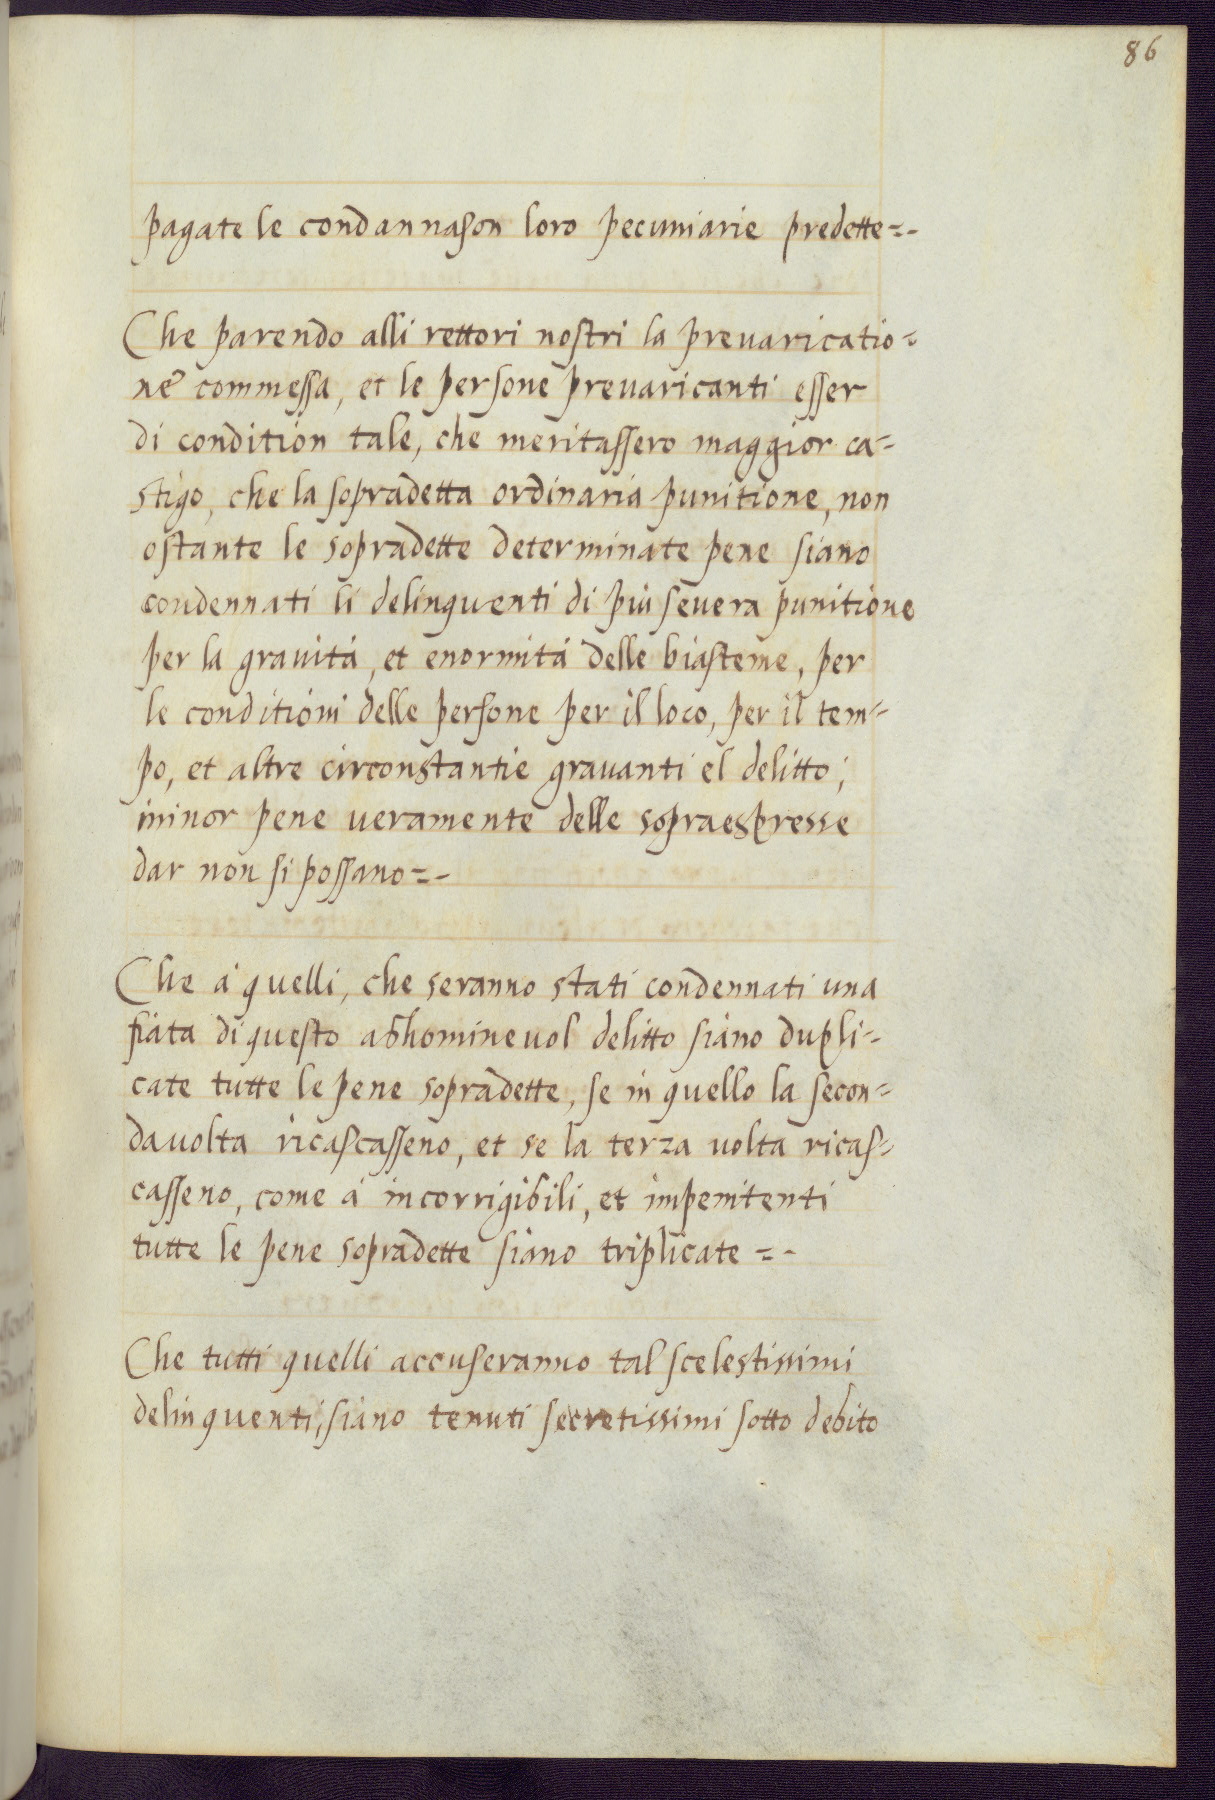 86
pagate le condannason loro pecuniarie predette=-
Che parendo alli rettori nostri la prevaricatio=
ne commessa, et le persone prevaricanti esser
di condition tale, che meritassero maggior ca-
stigo, che la sopradetta ordinaria punitione, non
ostante le sopradette determinate pene siano
condennati li delinquenti di più severa punitione
per la gravità, et enormità delle biasteme, per
le conditioni delle persone per il loco, per il tem-
po, et altre circonstantie gravanti el delitto;
minor pene veramente delle sopraespresse
dar non si possano=-
Che à quelli, che seranno stati condennati una
fiata di questo abhominevol delitto siano dupli-
cate tutte le pene sopradette, se in quello la secon=
da volta ricascasseno, et se la terza volta ricas-
casseno, come à incorrigibili, et impenitenti
tutte le pene sopradette siano triplicate=-
Che tutti quelli accuseranno tal scelestissimi
delinquenti, siano tenuti secretissimi sotto debito